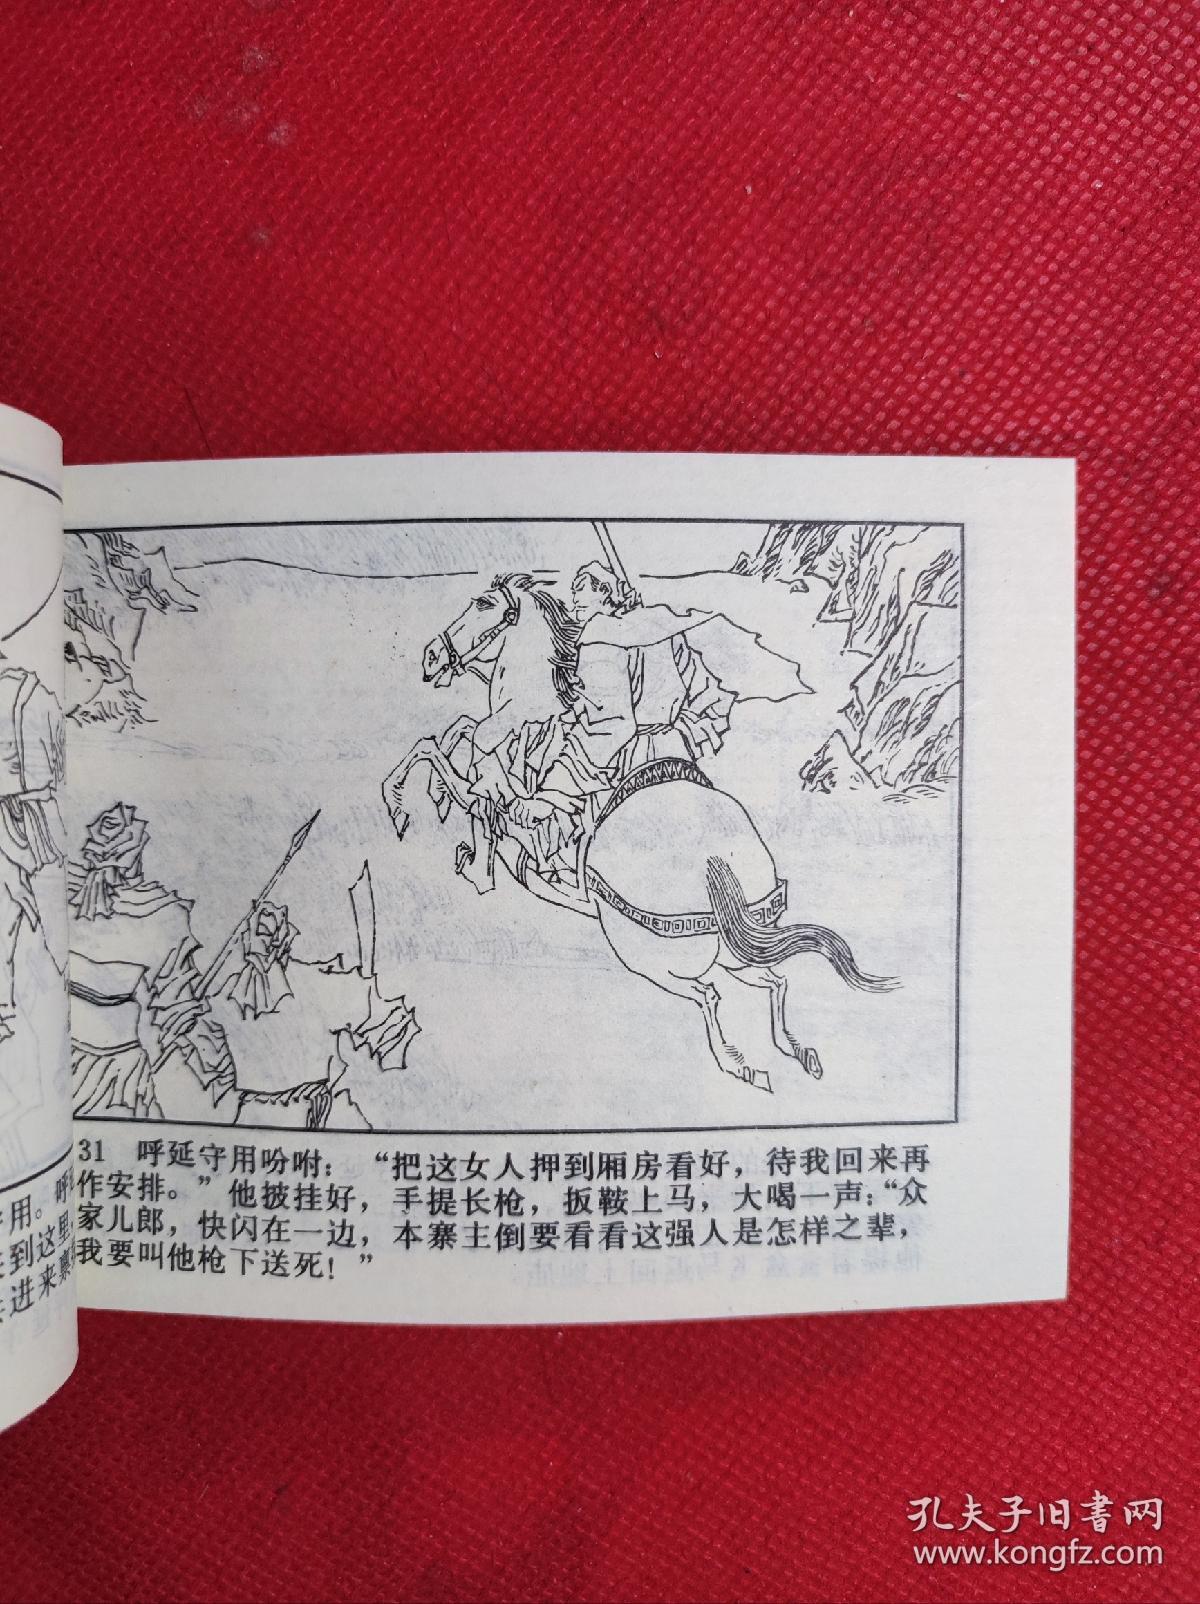 31 呼延守用吩咐：“把这女人押到厢房看好，待我回来再
作安排。”他披挂好，手提长枪，扳鞍上马，大喝一声：“众
家儿郎，快闪在一边，本寨主倒要看看这强人是怎样之辈，
我要叫他枪下送死！”
用。呼
到这里
进来禀
孔夫子旧书网
www.kongfz.com